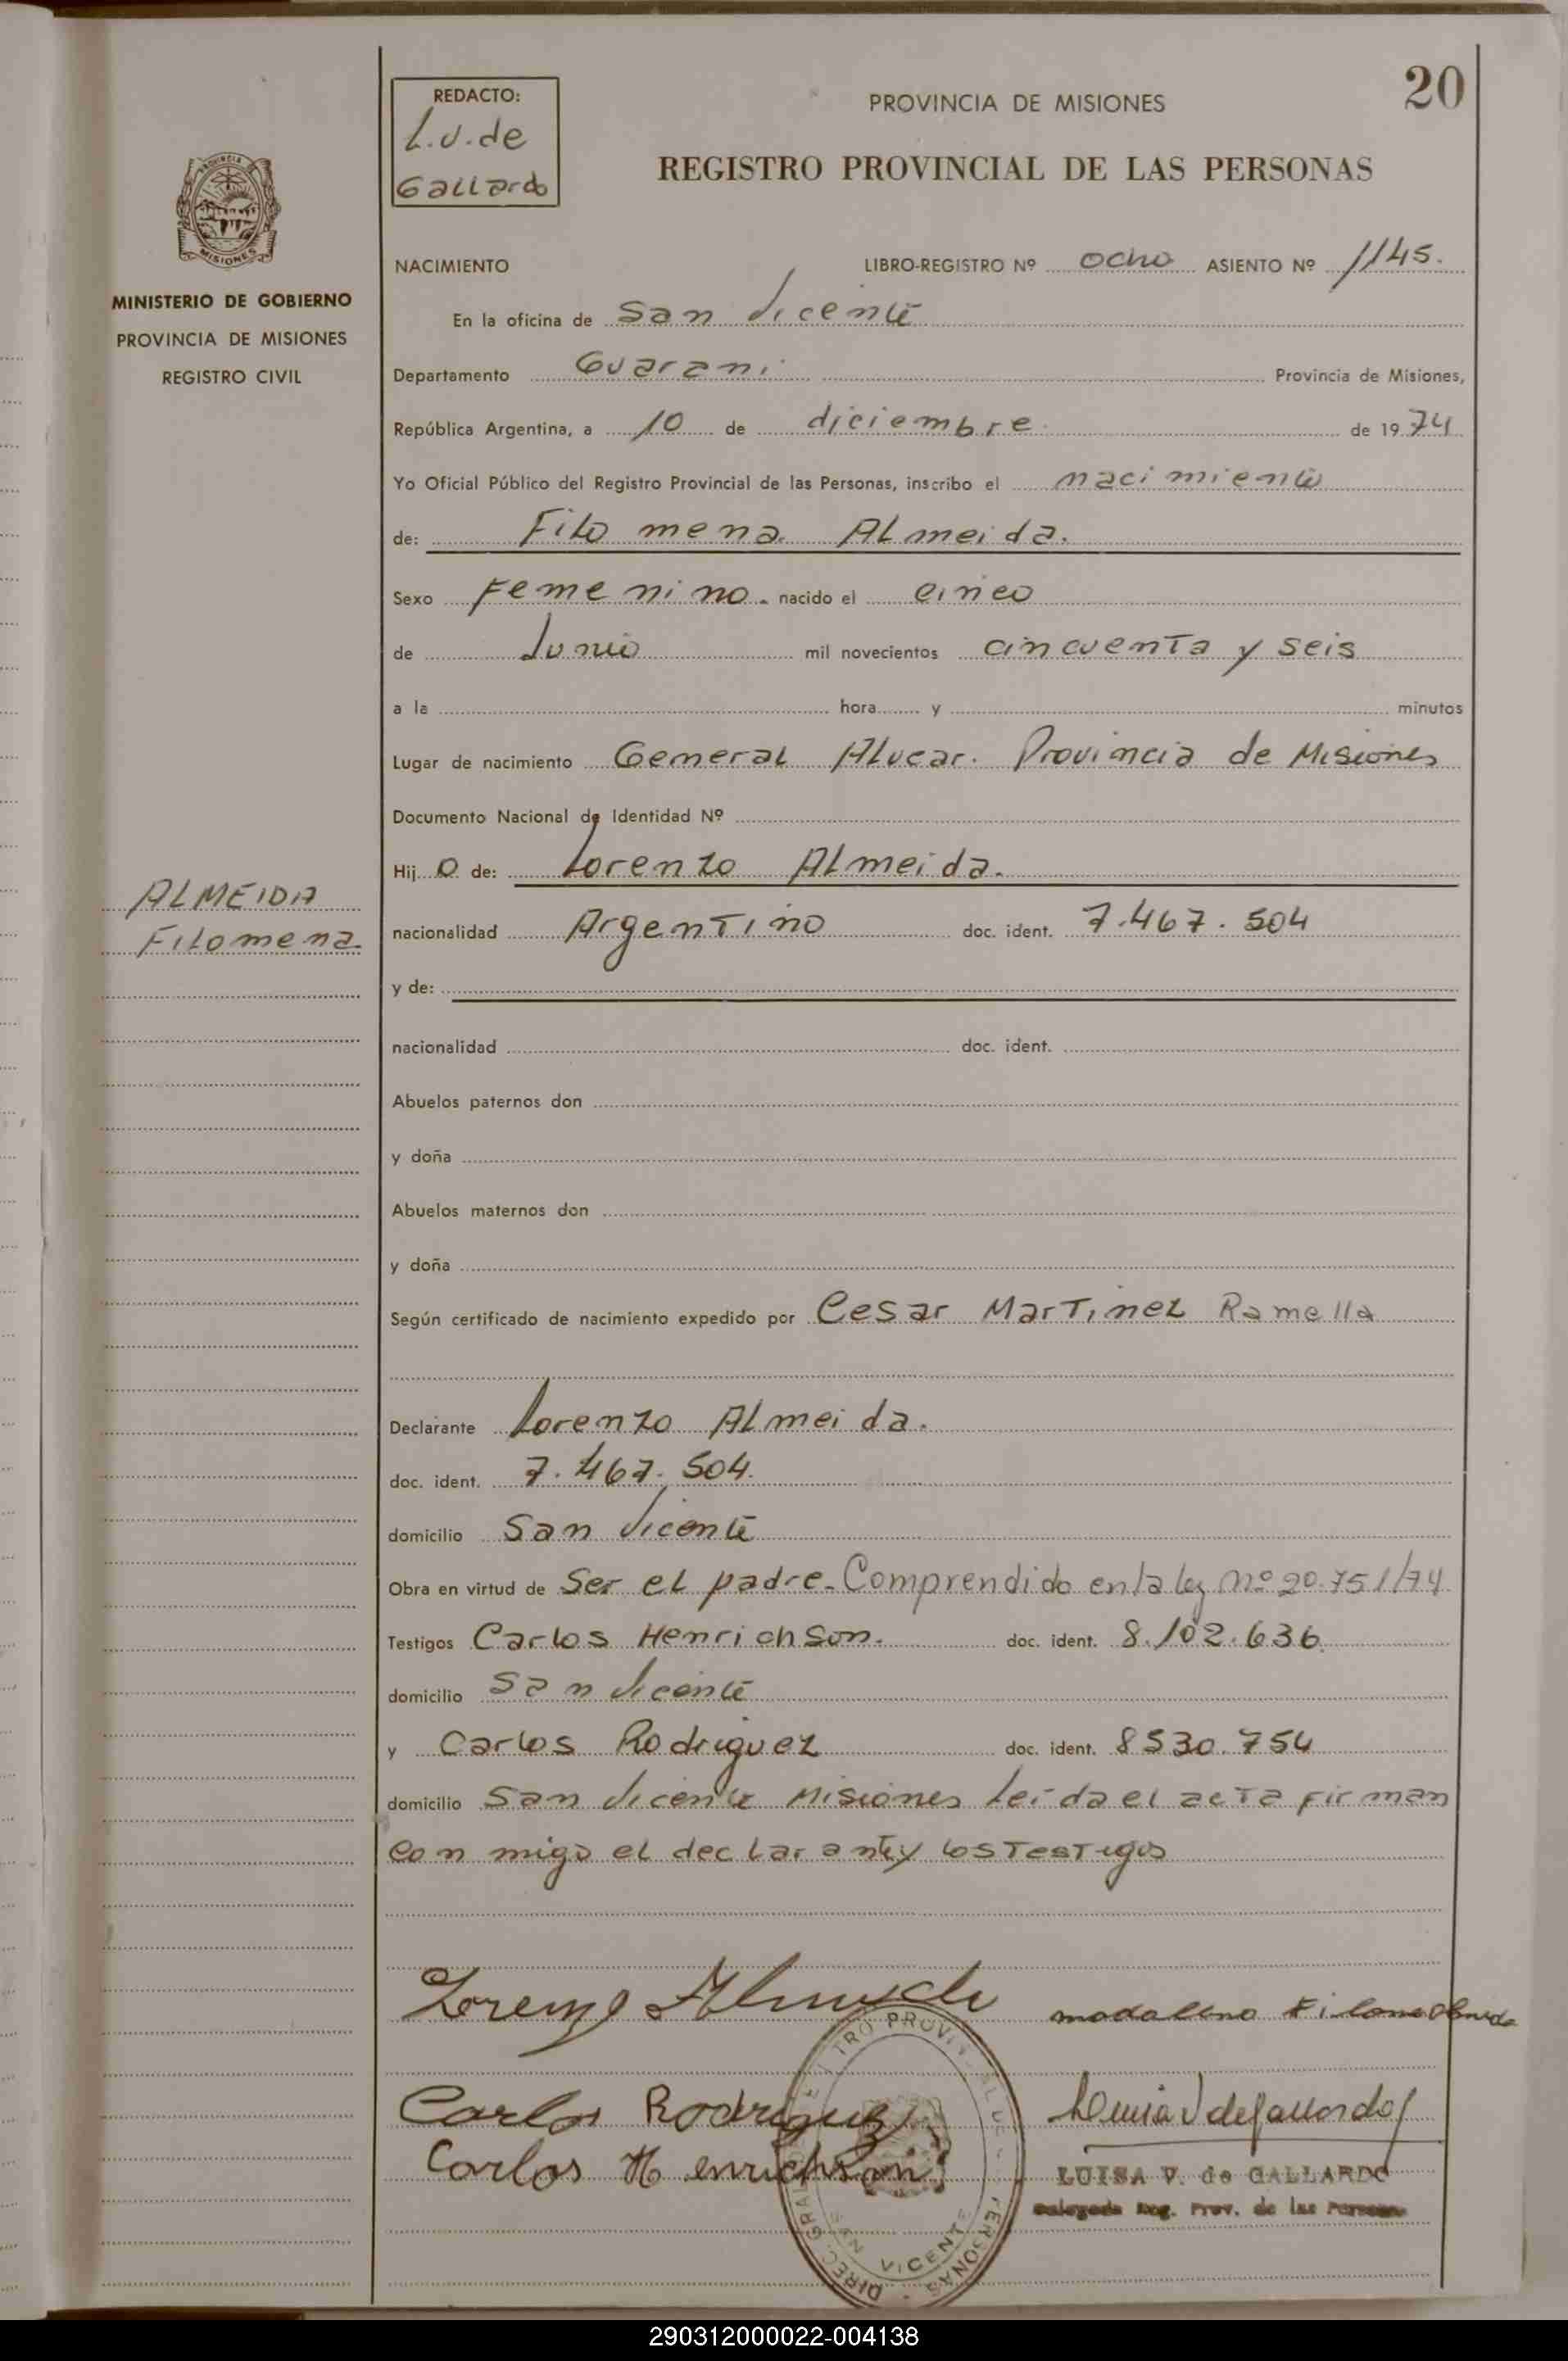 20
REDACTO:
L.V. de
Gallardo
PROVINCIA DE MISIONES
REGISTRO PROVINCIAL DE LAS PERSONAS
MISIONES
MINISTERIO DE GOBIERNO
PROVINCIA DE MISIONES
REGISTRO CIVIL
NACIMIENTO LIBRO-REGISTRO Nº ocho ASIENTO Nº 1145.
En la oficina de San Vicente
Departamento Guarani Provincia de Misiones,
República Argentina, a 10 de diciembre de 1974
Yo Oficial Público del Registro Provincial de las Personas, inscribo el nacimiento
de: Filomena Almeida.
Sexo Femenino. nacido el cinco
de Junio mil novecientos cincuenta y seis
a la hora y minutos
Lugar de nacimiento General Alvear. Provincia de Misiones
Documento Nacional de Identidad Nº
Hij o de: Lorenzo Almeida.
ALMEIDA
Filomena.
nacionalidad Argentino doc. ident. 7.467.504
y de:
nacionalidad doc. ident.
Abuelos paternos don
y doña
Abuelos maternos don
y doña
Según certificado de nacimiento expedido por Cesar Martinez Ramella
Declarante Lorenzo Almeida.
doc. ident. 7.467.504.
domicilio San Vicente
Obra en virtud de Ser el padre. Comprendido en la ley nº 20.751/74
Testigos Carlos Henrichson. doc. ident. 8.102.636.
domicilio San Vicente
y Carlos Rodriguez doc. ident. 8530.754
domicilio San Vicente Misiones Leída el acta firman
conmigo el declarante y los testigos
Lorenzo Almeida
Carlos Rodriguez
Carlos Henrichson
LUISA V. de GALLARDO
Delegada Reg. Prov. de las Personas
SAN VICENTE
290312000022-004138